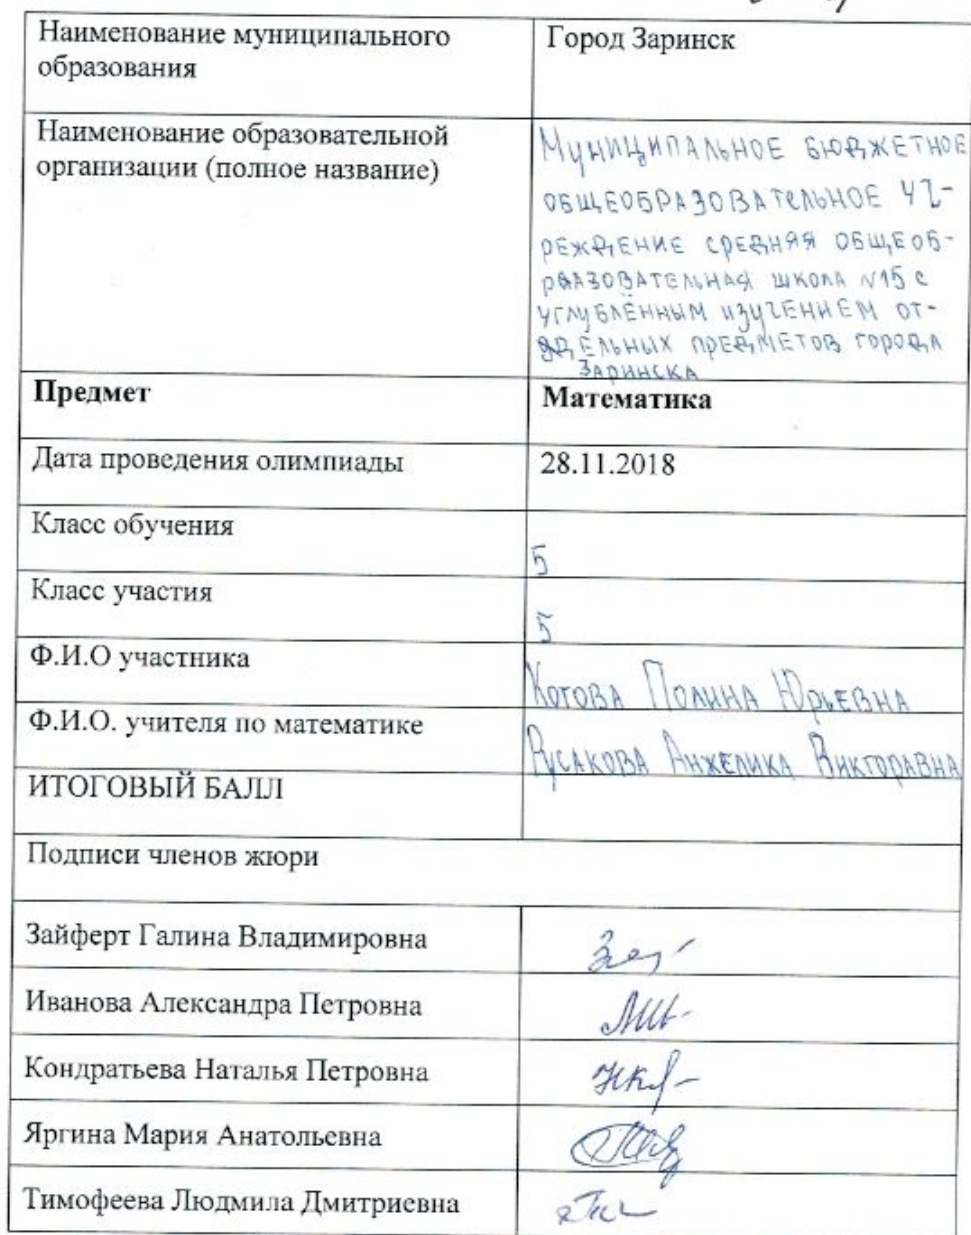 Наименование муниципального
образования
Город Заринск
Наименование образовательной
организации (полное название)
Муниципальное бюджетное
общеобразовательное уч-
реждение средняя общеоб-
разовательная школа №15 с
углублённым изучением от-
дельных предметов города
Заринска
Предмет
Математика
Дата проведения олимпиады
28.11.2018
Класс обучения
5
Класс участия
5
Ф.И.О участника
Котова Полина Юрьевна
Ф.И.О. учителя по математике
Русакова Анжелика Викторавна
ИТОГОВЫЙ БАЛЛ
Подписи членов жюри
Зайферт Галина Владимировна
Иванова Александра Петровна
Кондратьева Наталья Петровна
Яргина Мария Анатольевна
Тимофеева Людмила Дмитриевна